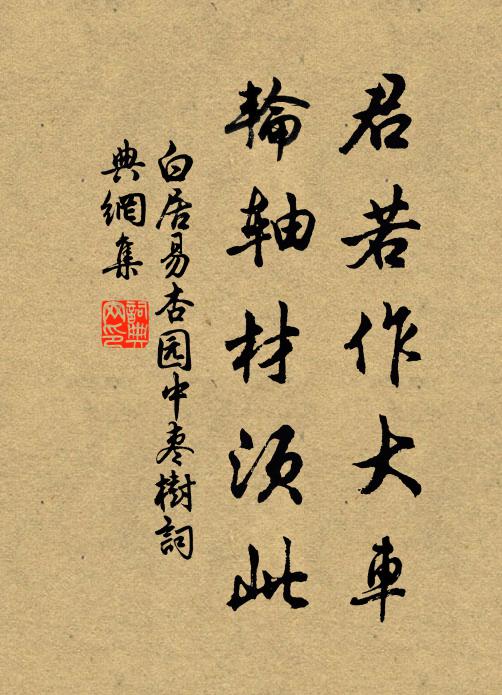 君若作大車
輪軸材須此
白居易杏园中枣樹詞
典網集
詞典
网印